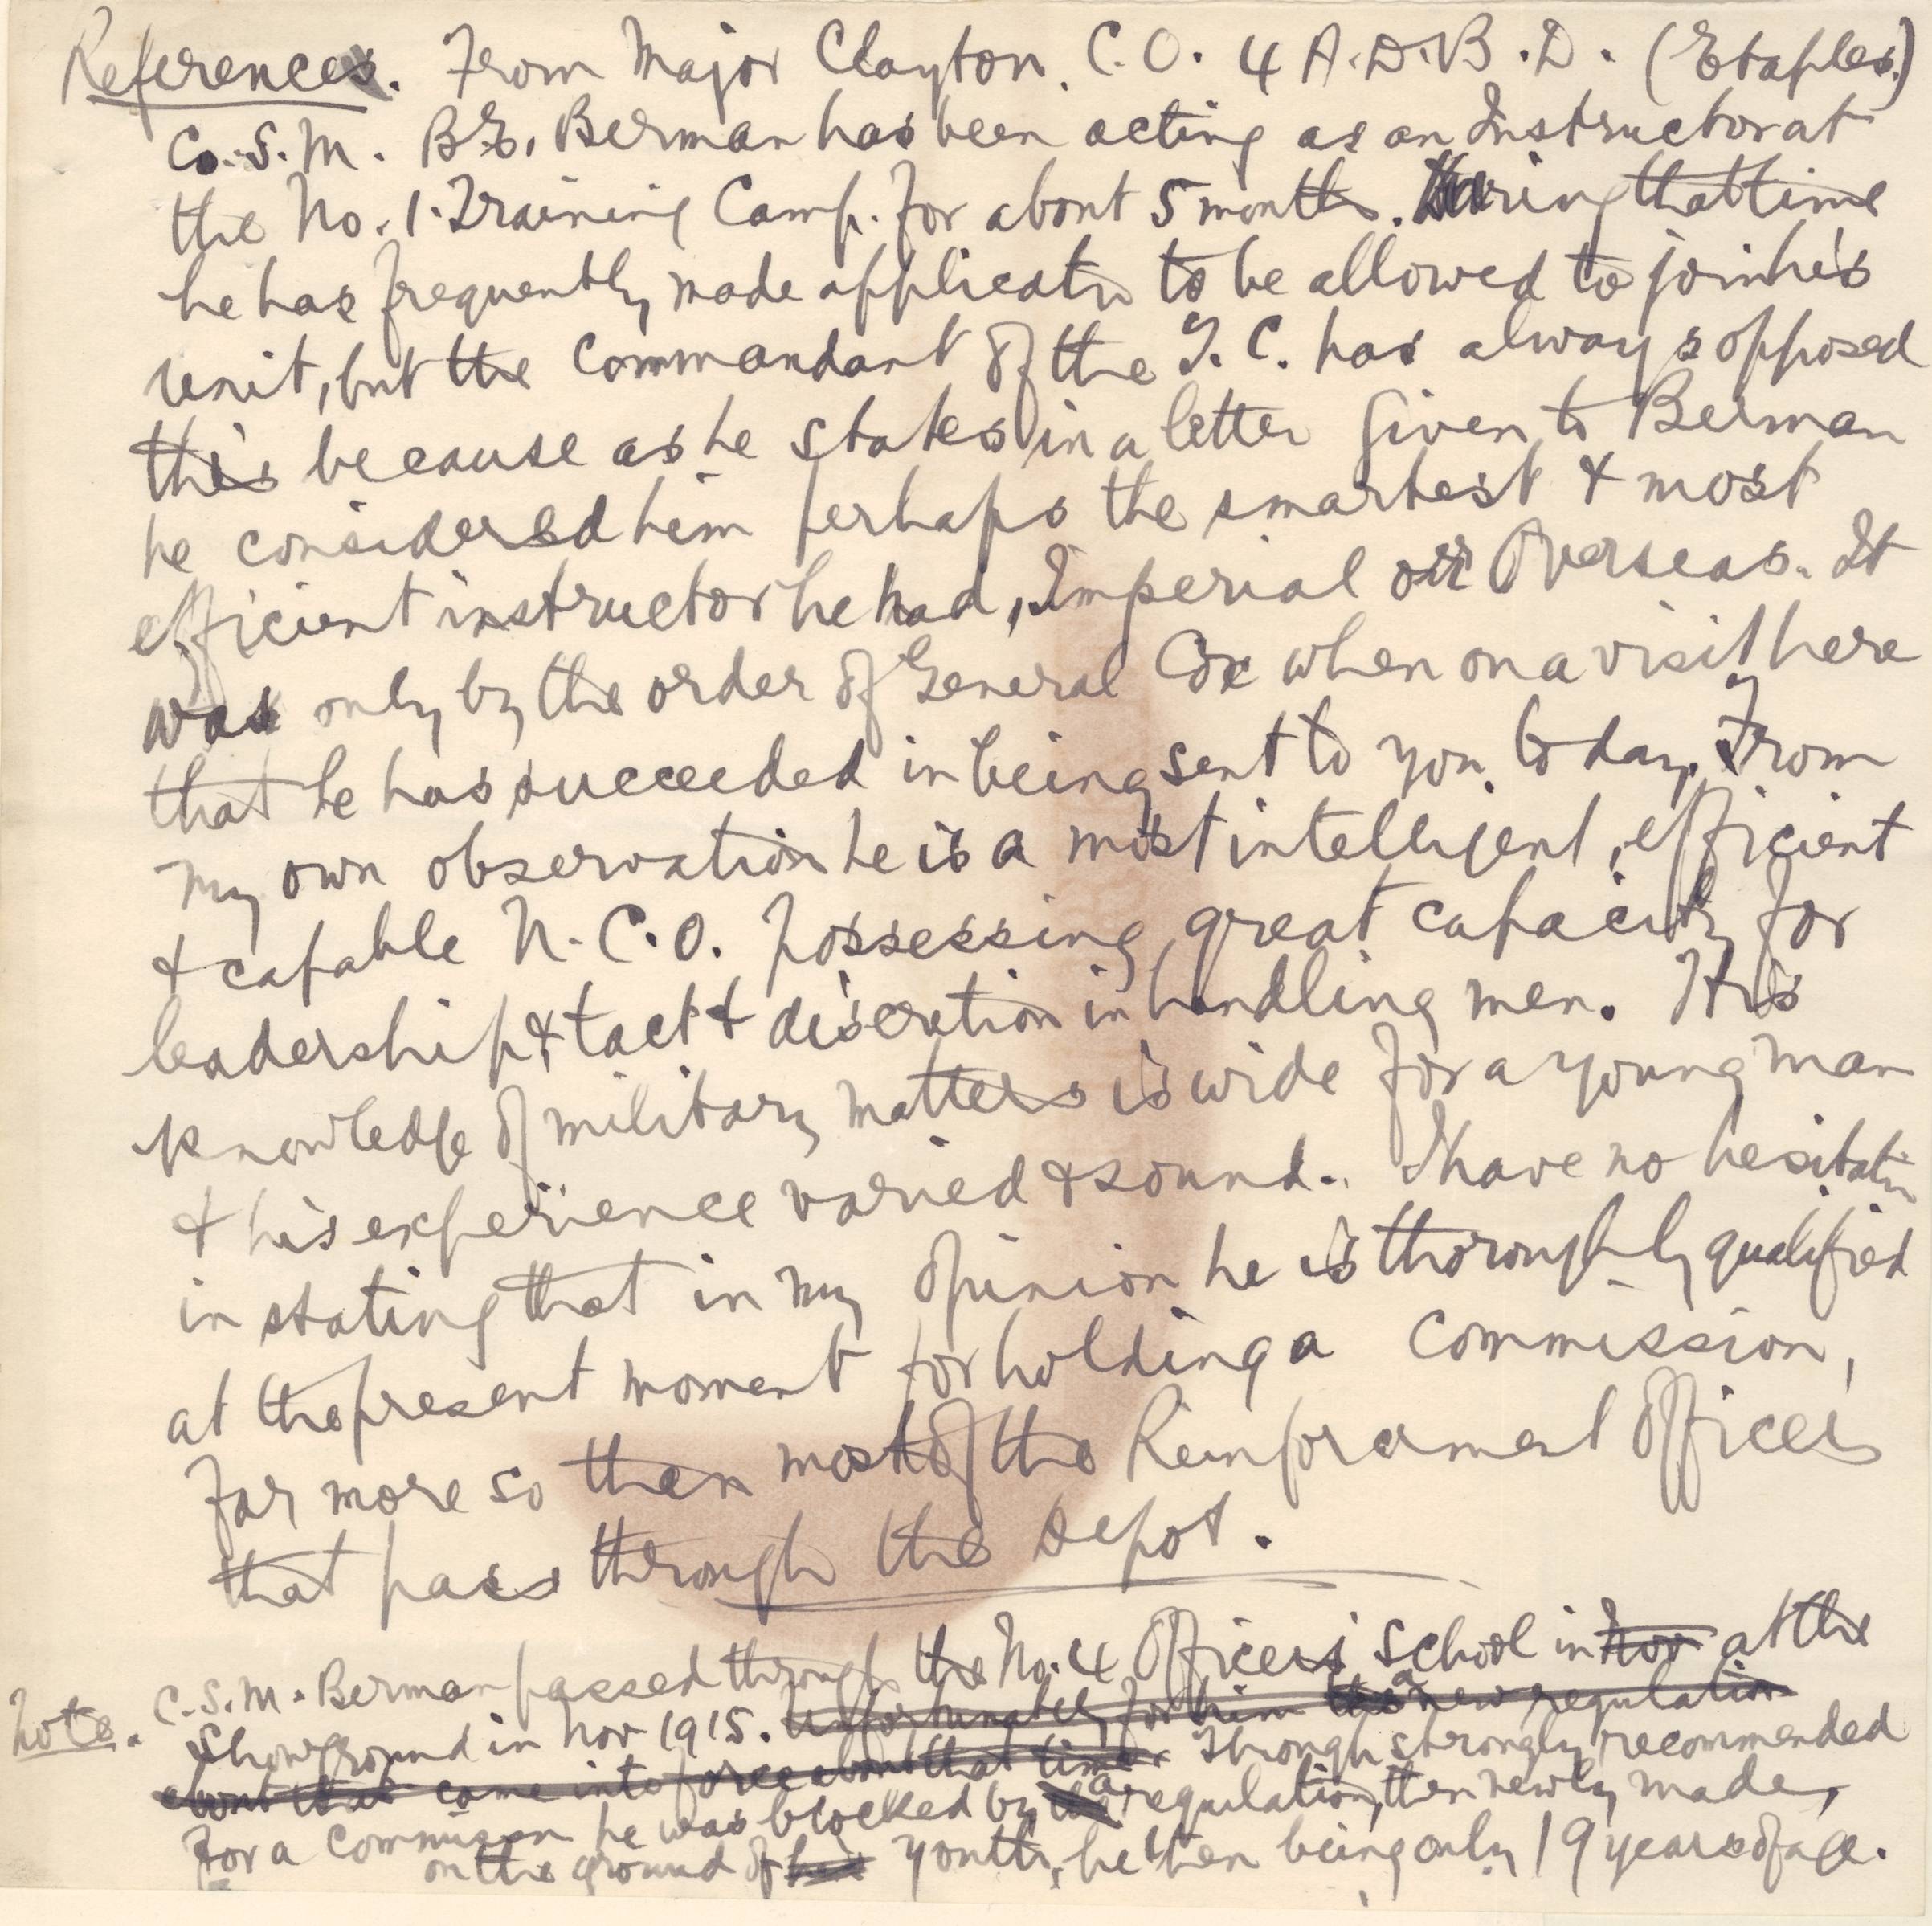 References. From Major Clayton. C.O. 4 A.D.B.D. (Etaples)
Co. S.M. B.E. Berman has been acting as an Instructor at
the No. 1. Training Camp. for about 5 months. During that time
he has frequently made applicatn to be allowed to join his
unit, but the Commandant of the T.C. has always opposed
this because as he states in a letter given to Berman
he considered him perhaps the smartest & most
efficient instructor he had, Imperial or Overseas. It
was only by the order of General Cox when on a visit here
that he has succeeded in being sent to you today. From
my own observation he is a most intelligent, efficient
& capable N.C.O. possessing great capacity for
leadership & tact & discretion in handling men. His
knowledge of military matters is wide for a young man
& his experience varied & sound. I have no hesitatin
in stating that in my opinion he is thoroughly qualified
at the present moment for holding a Commission,
far more so than most of the Reinforcement Officers
that pass through the Depot.
Note. C.S.M. Berman passed through the No. 4 Officers' School in Nov at the
Showground in Nov 1915. Unfortunately for him the a new regulation
about that came into force about that time Though strongly recommended
for a Commission he was blocked by the a regulation, then newly made,
on the ground of his youth, he then being only 19 years of age.